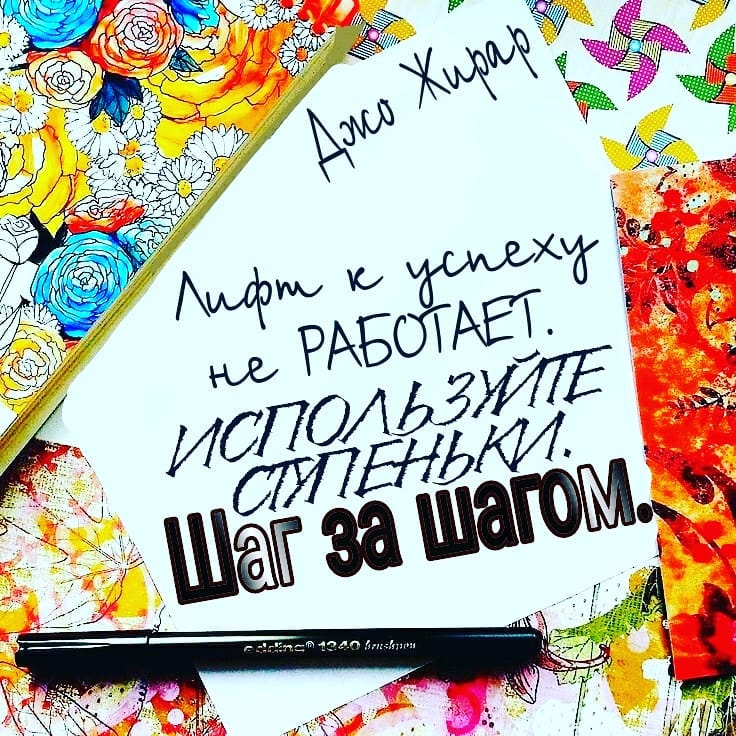 Джо Жирар
Лифт к успеху
не РАБОТАЕТ.
ИСПОЛЬЗУЙТЕ
СТУПЕНЬКИ.
Шаг за шагом.
edding® 1340 brushpen